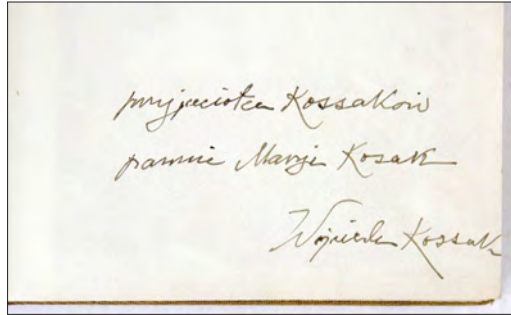 przyjaciółce Kossaków
pannie Maryi Kosak
Wojciech Kossak